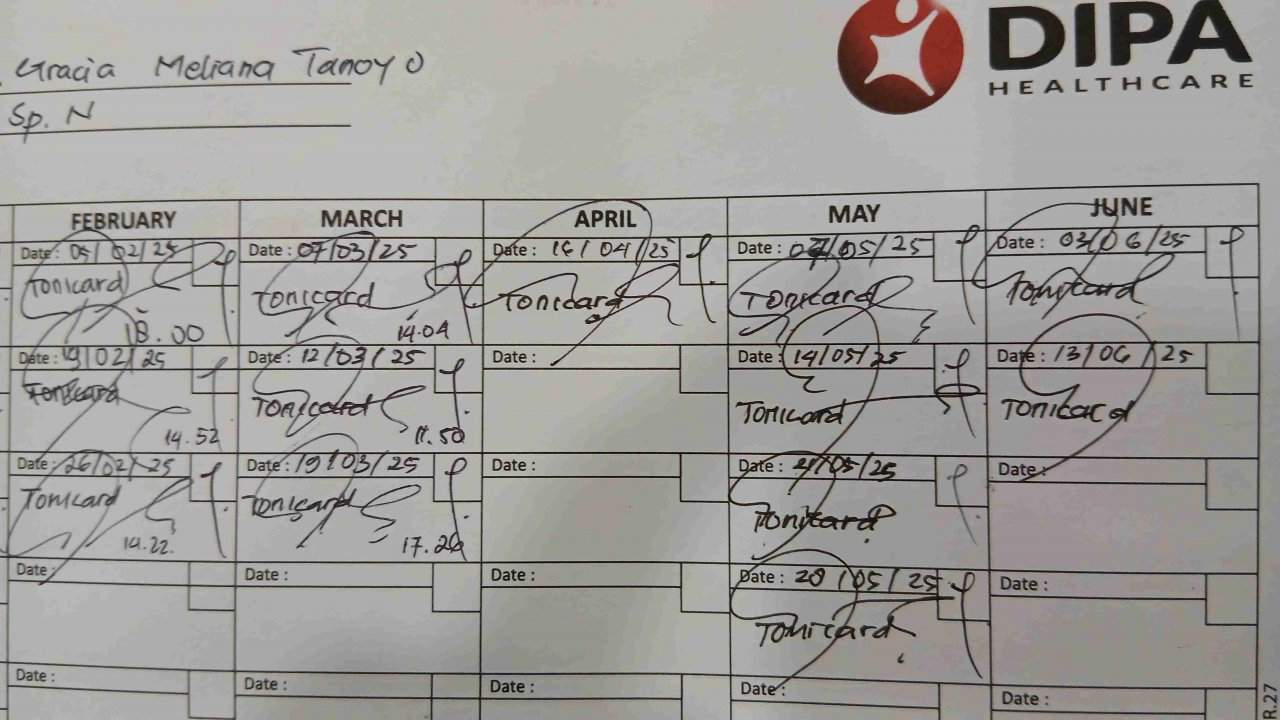 Gracia Meliana Tanoyo
Sp. N
DIPA
HEALTHCARE
FEBRUARY MARCH APRIL MAY JUNE
Date : 05/02/25 Date : 07/03/25 Date : 16/04/25 Date : 07/05/25 Date : 03/06/25
Tonicard Tonicard Tonicard Tonicard Tonicard
18.00 14.04
Date : 19/02/25 Date : 12/03/25 Date : Date : 14/05/25 Date : 13/06/25
Tonicard Tonicard Tonicard Tonicard
14.52 11.50
Date : 26/02/25 Date : 19/03/25 Date : Date : 21/05/25 Date :
Tonicard Tonicard Tonicard
14.22. 17.20
Date : Date : Date : Date : 28/05/25 Date :
Tonicard
Date : Date : Date : Date : Date :
R.27